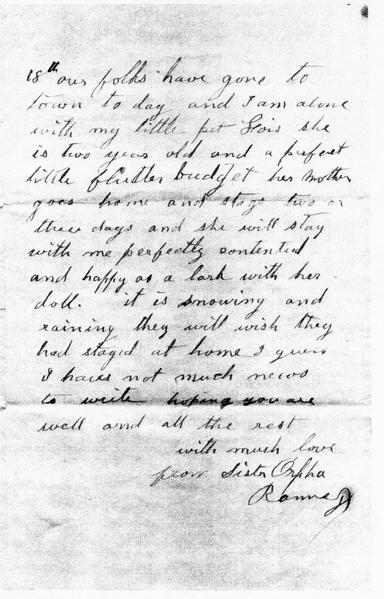 18th our folks have gone to
town to day and I am alone
with my little pet Lois she
is two years old and a prefect
little chatter budget her mother
goes home and stays two or
three days and she will stay
with me perfectly contented
and happy as a lark with her
doll. it is snowing and
raining they will wish they
had stayed at home I guess
I haves not much news
to write hoping you are
well and all the rest
with much love
from Sister Orpha
Ramsey